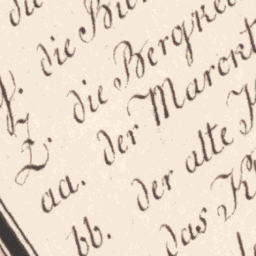 die
y. die
Z. die Bergkel
aa. der Marckt
bb. der alte
das